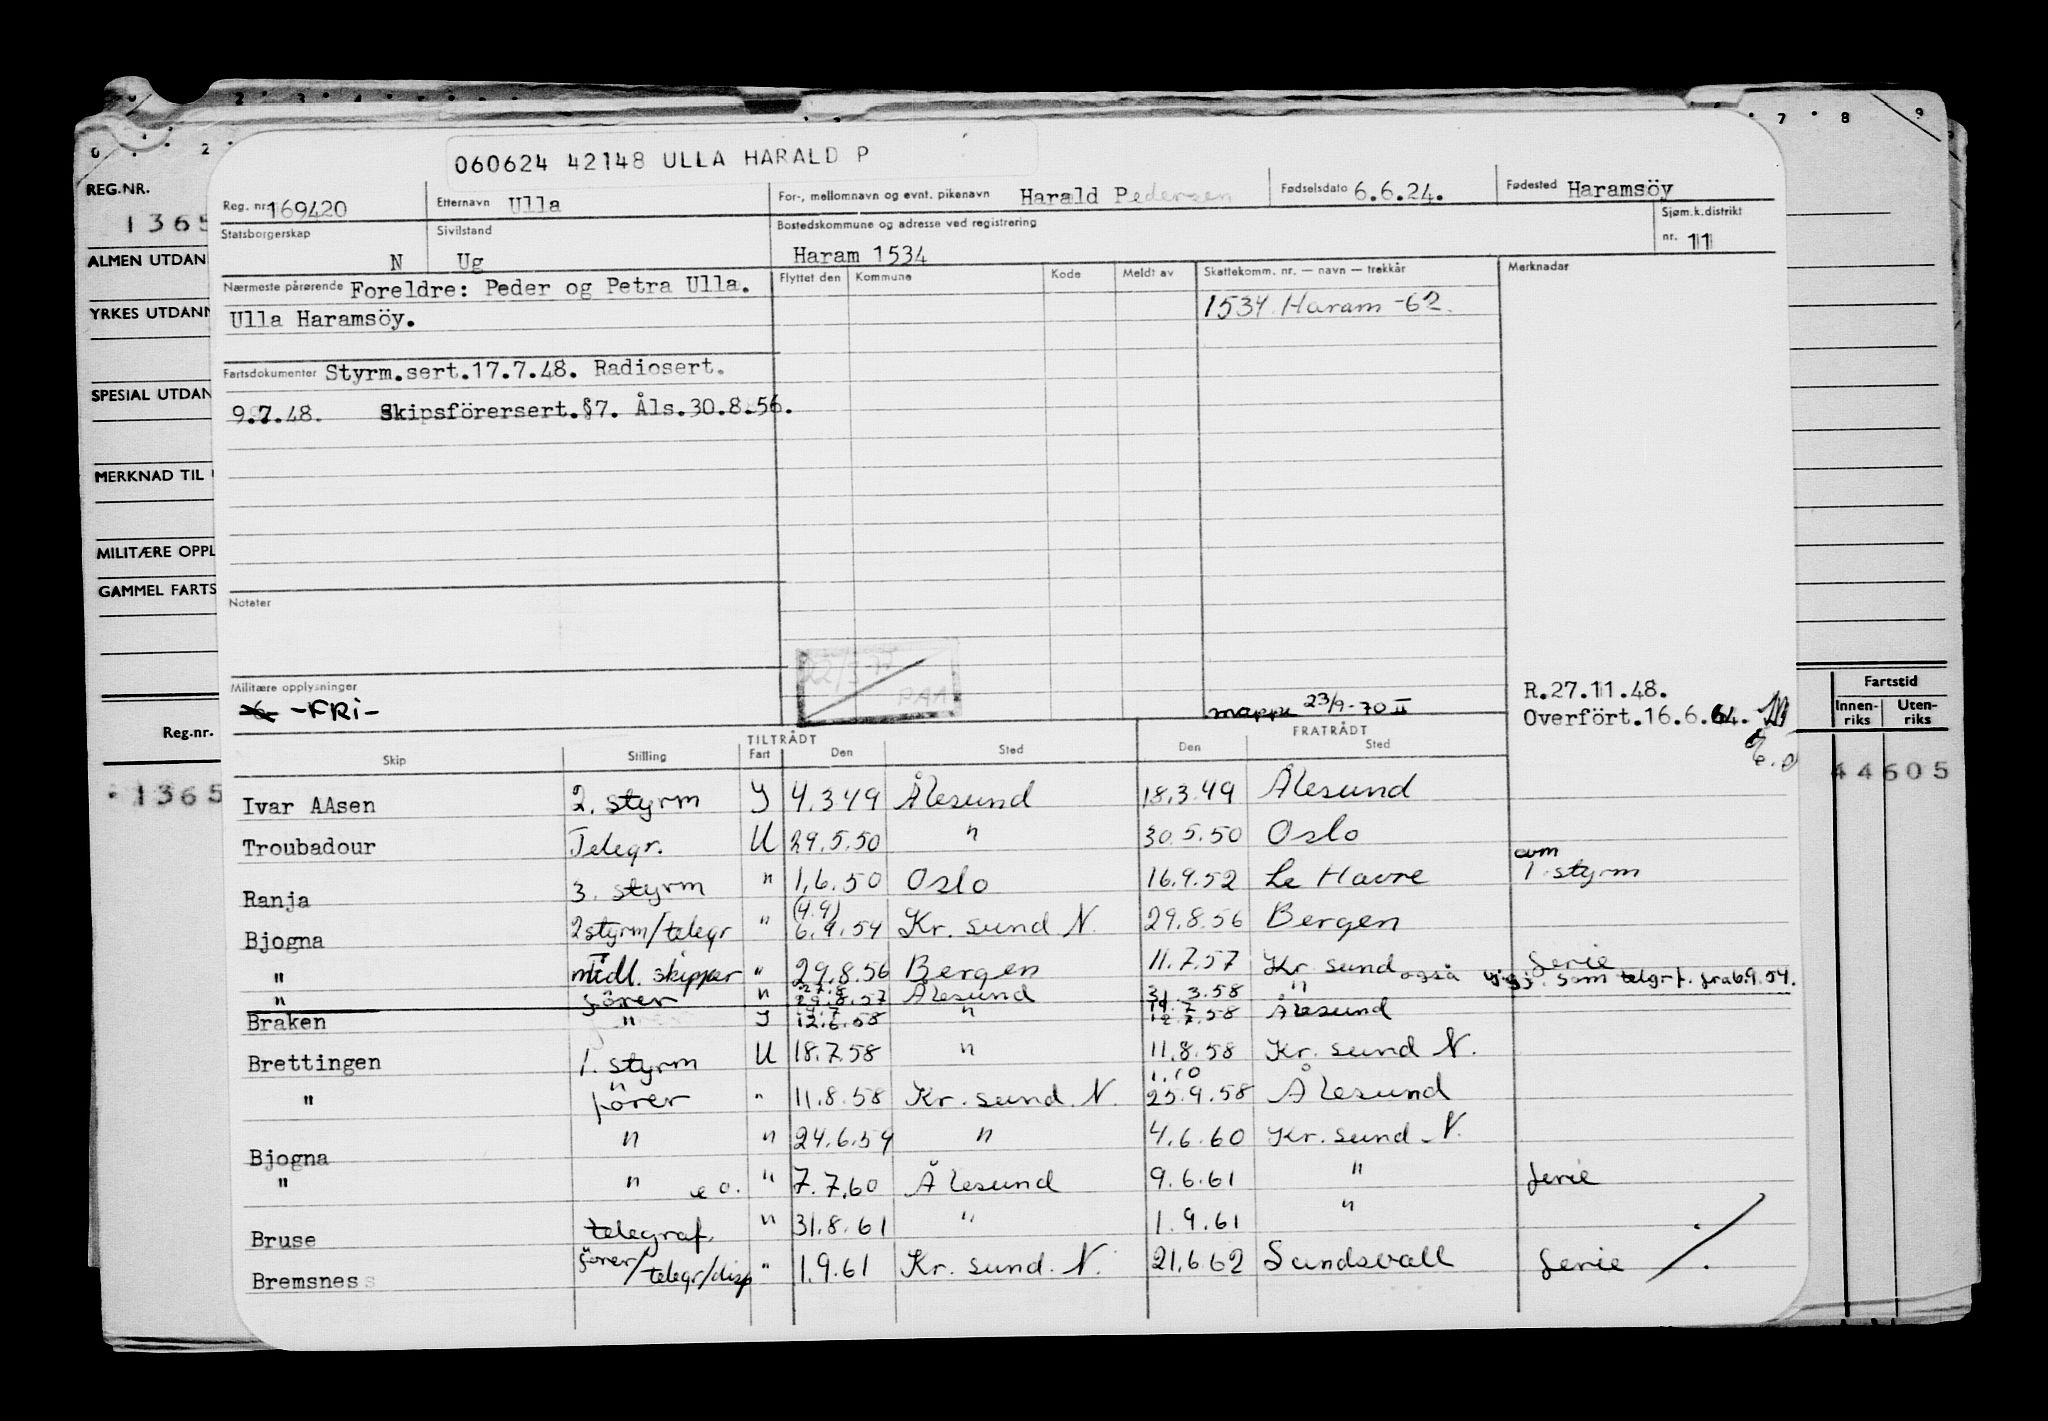 060624 42148 ULLA HARALD P
Reg. nr. 169420 Etternavn Ulla For-, mellomnavn og evnt. pikenavn Harald Pedersen Fødselsdato 6.6.24. Fødested Haramsöy
Statsborgerskap N Sivilstand Ug Bostedskommune og adresse ved registrering Haram 1534 Sjøm.k.distrikt nr. 11
Nærmeste pårørende Foreldre: Peder og Petra Ulla. Flyttet den Kommune Kode Meldt av Skattekomm. nr. — navn — trekkår Merknader
Ulla Haramsöy. 1534 Haram -62.
Fartsdokumenter Styrm.sert.17.7.48. Radiosert.
9.7.48. Skipsförersert.§7. Åls.30.8.56.
Notater
Militære opplysninger
-FRi-
mappe 23/9-70 II
R.27.11.48.
Overfört.16.6.64.
Skip Stilling TILTRÅDT Fart Den Sted FRATRÅDT Den Sted
Ivar AAsen 2. styrm I 4.3 49 Ålesund 18.3.49 Ålesund
Troubadour Telegr. U 29.5.50 " 30.5.50 Oslo
Ranja 3. styrm " 1.6.50 Oslo 16.9.52 Le Havre 1. styrm
(4.9)
Bjogna 2 styrm/telegr " 6.9.54 Kr. sund N. 29.8.56 Bergen
" midl. skipper " 29.8.56 Bergen 11.7.57 Kr sund Serie
også som telgrf. fra 6.9.54.
" förer " .8.57 Ålesund 31.3.58 "
Braken " I 12.6.58 " 12.7.58 Ålesund
Brettingen 1. styrm U 18.7.58 " 11.8.58 Kr. sund N.
1.10
" förer " 11.8.58 Kr. sund. N. 25.9.58 Ålesund
Bjogna " " 24.6.59 " 4.6.60 Kr. sund. N.
" " e o. " 7.7.60 Ålesund 9.6.61 " Serie
Bruse telegraf. " 31.8.61 " 1.9.61 "
Bremsnes förer/telegr/disp " 1.9.61 Kr. sund. N. 21.6.62 Sundsvall Serie
REG.NR.
1365
ALMEN UTDAN
YRKES UTDANN
SPESIAL UTDAN
MERKNAD TIL
MILITÆRE OPPL
GAMMEL FARTS
Reg.nr.
1365
Fartstid
Innen-riks Uten-riks
44605